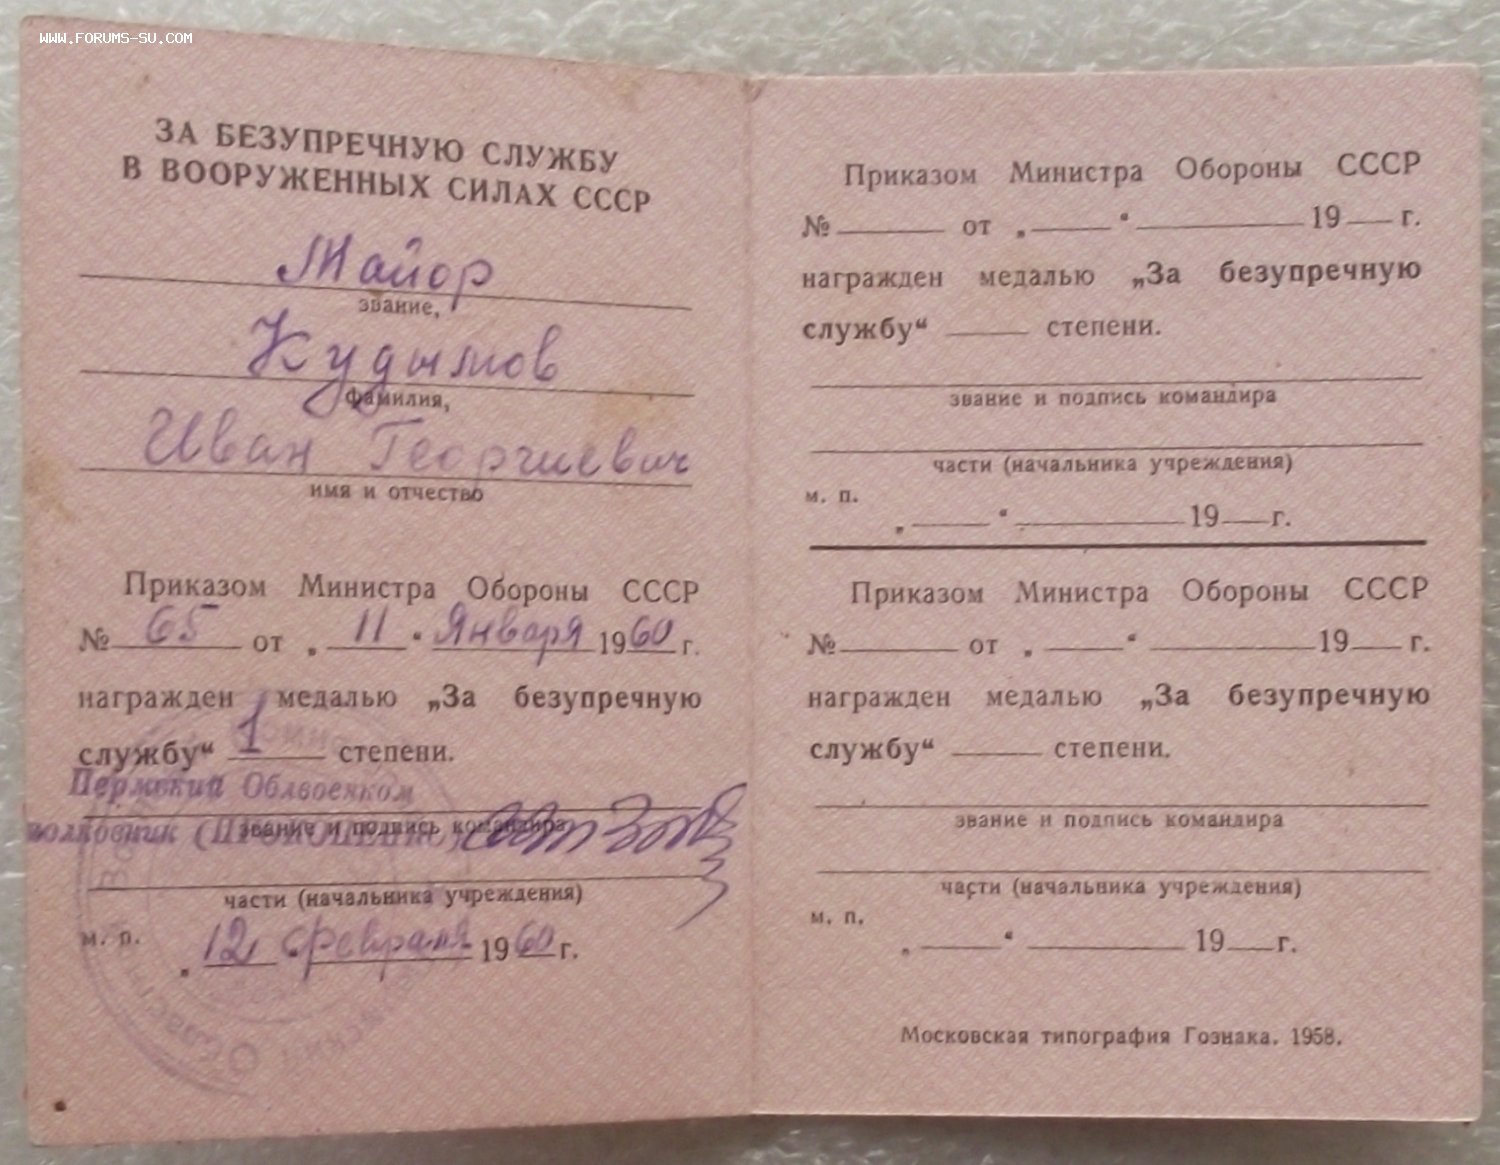 WWW.FORUMS-SU.COM
ЗА БЕЗУПРЕЧНУЮ СЛУЖБУ
В ВООРУЖЕННЫХ СИЛАХ СССР
Майор
звание,
Кудымов
фамилия,
Иван Георгиевич
имя и отчество
Приказом Министра Обороны СССР
№ 65 от „ 11 “ Января 1960 г.
награжден медалью „За безупречную
службу“ 1 степени.
Пермский Облвоенком
звание и подпись командира
полковник (ПРОКОПЕНКО)
части (начальника учреждения)
м. п.
„ 12 “ февраля 1960 г.
Приказом Министра Обороны СССР
№ от „ “ 19 г.
награжден медалью „За безупречную
службу“ степени.
звание и подпись командира
части (начальника учреждения)
м. п.
„ “ 19 г.
Приказом Министра Обороны СССР
№ от „ “ 19 г.
награжден медалью „За безупречную
службу“ степени.
звание и подпись командира
части (начальника учреждения)
м. п.
„ “ 19 г.
Московская типография Гознака. 1958.